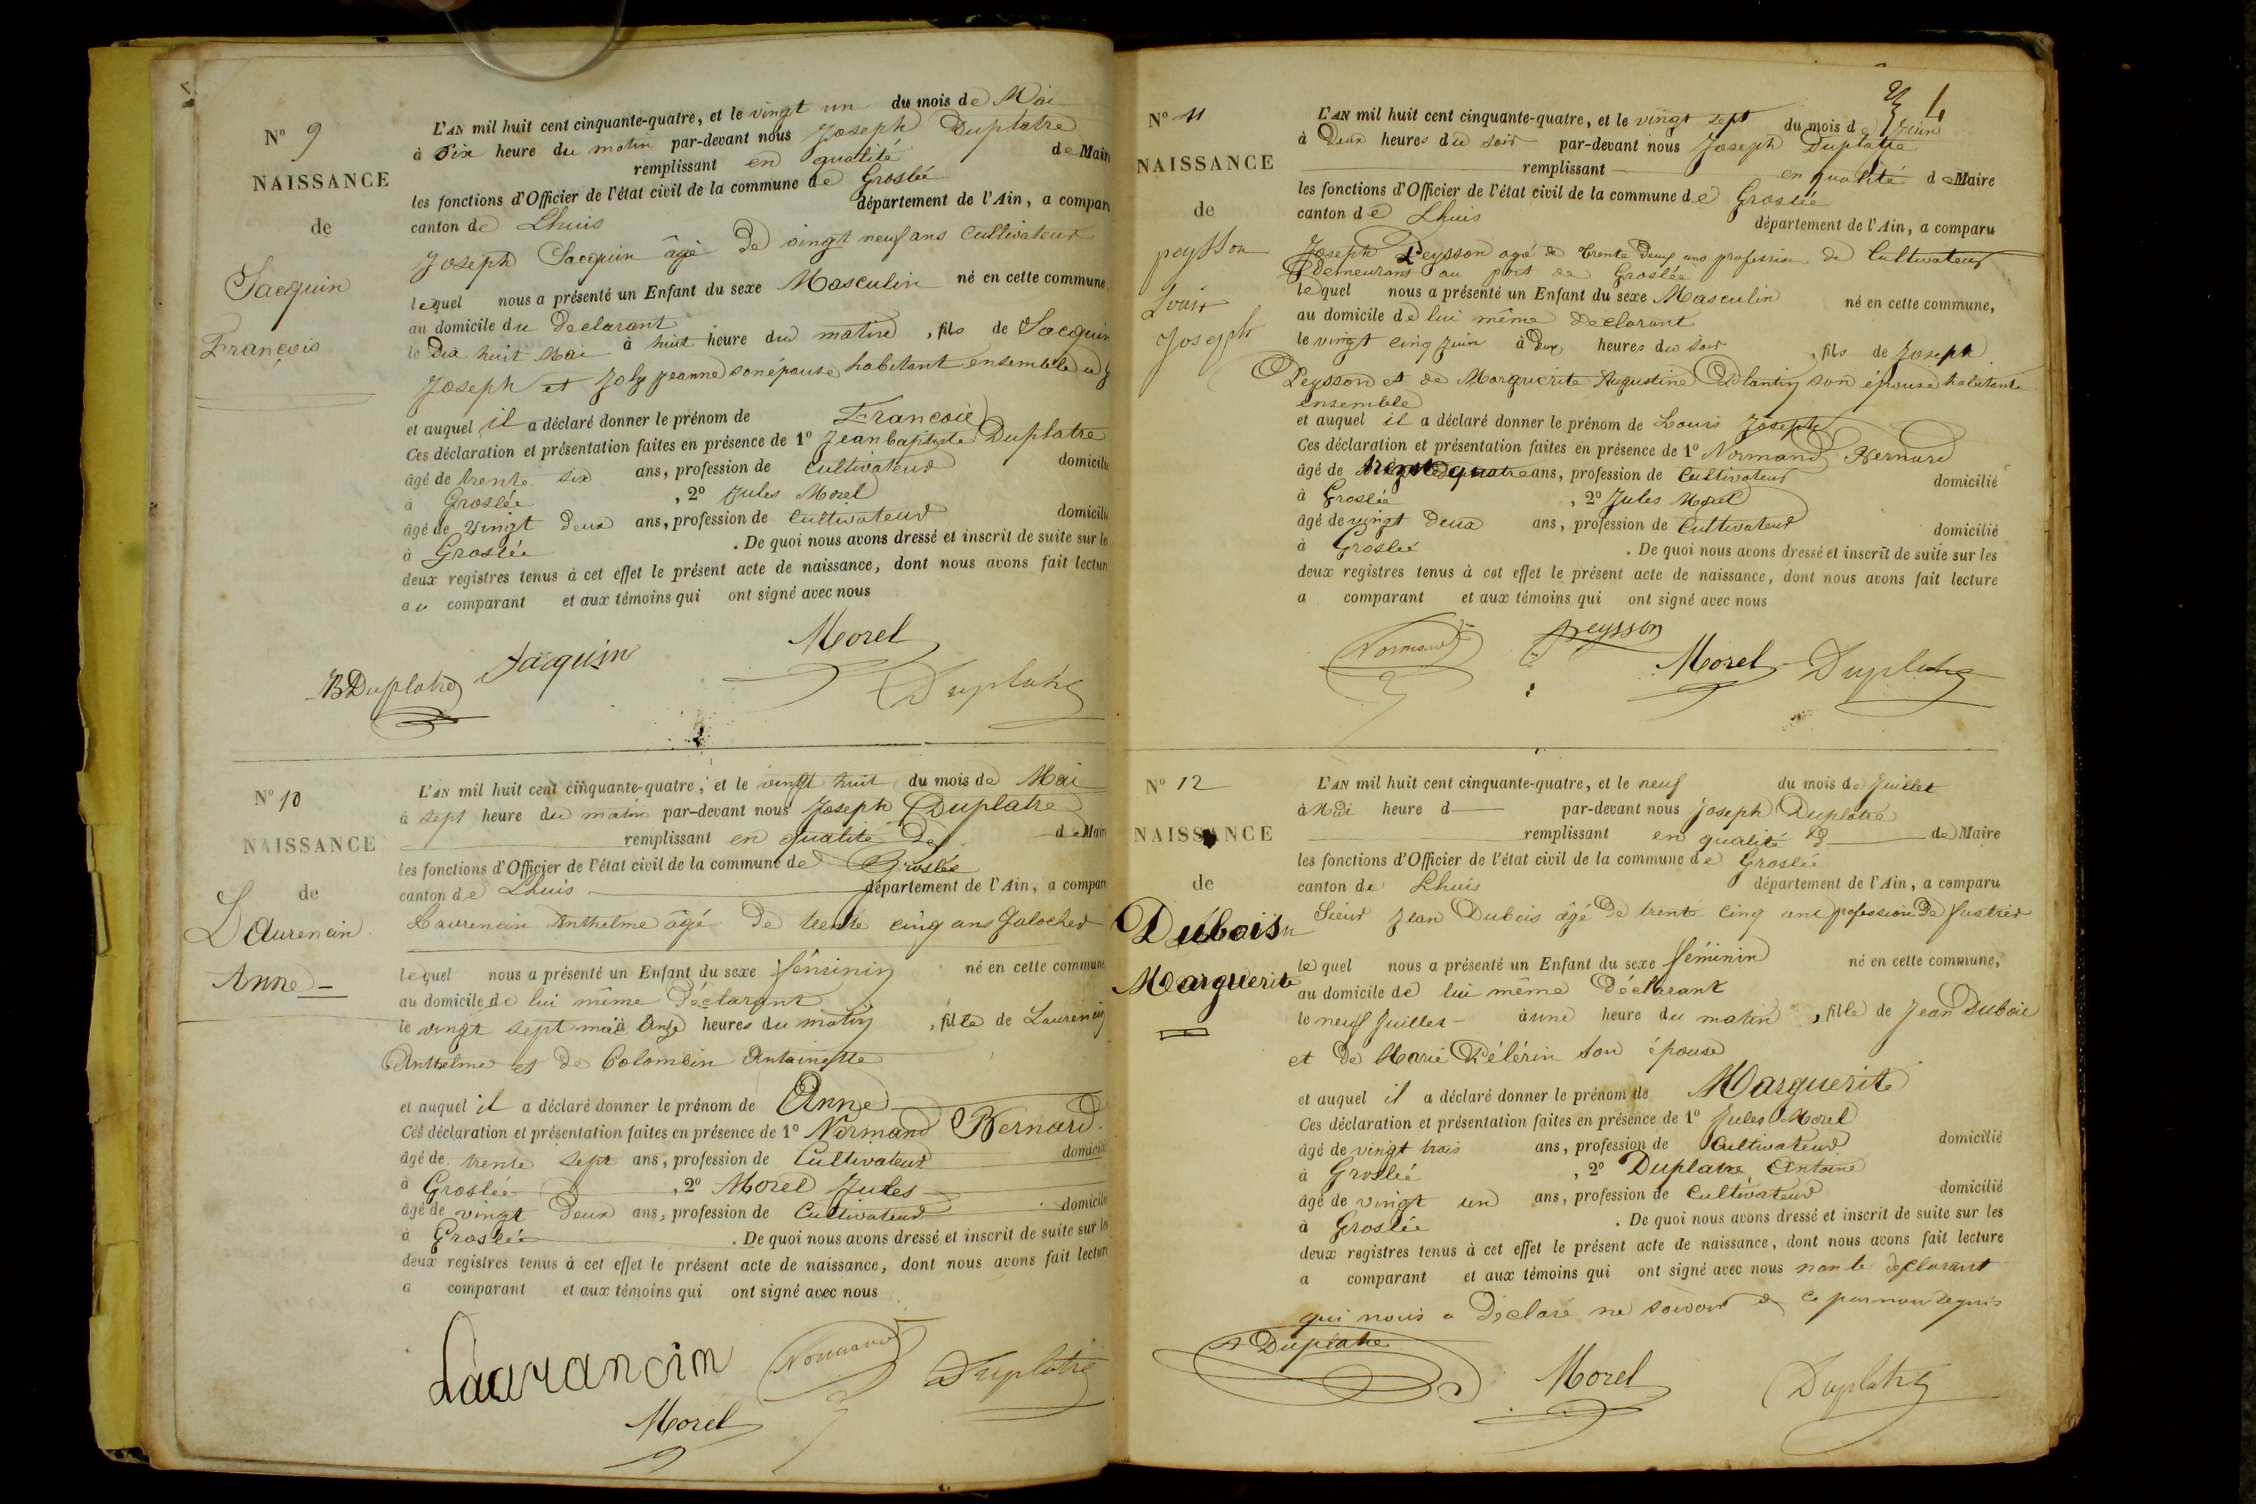 N° 9
NAISSANCE
de
Jacquin
François
L'AN mil huit cent cinquante-quatre, et le vingt un du mois de Mai
à Six heure du matin par-devant nous Joseph Duplatre
remplissant en qualité de Maire
les fonctions d'Officier de l'état civil de la commune de Groslée
canton de Lhuis département de l'Ain, a compar
Joseph Jacquin âgé de vingt neuf ans Cultivateur
lequel nous a présenté un Enfant du sexe Masculin né en cette commune,
au domicile du declarant
le Dix huit Mai à huit heure du matin, fils de Jacquin
Joseph et Joly Jeanne son épouse habitant ensemble
et auquel il a déclaré donner le prénom de François
Ces déclaration et présentation faites en présence de 1° Jean baptiste Duplatre
âgé de trente six ans, profession de Cultivateur domicilié
à Groslée, 2° Jules Morel
âgé de vingt deux ans, profession de Cultivateur domicilié
à Groslée. De quoi nous avons dressé et inscrit de suite sur le
deux registres tenus à cet effet le présent acte de naissance, dont nous avons fait lectur
au comparant et aux témoins qui ont signé avec nous
Morel
Jacquin
JB Duplatre
Duplatre
N° 10
NAISSANCE
de
Laurencin
Anne
L'AN mil huit cent cinquante-quatre, et le vingt huit du mois de Mai
à sept heure du matin par-devant nous Joseph Duplatre
remplissant en qualité de de Maire
les fonctions d'Officier de l'état civil de la commune de Groslée
canton de Lhuis département de l'Ain, a compar
Laurencin Anthelme âgé de trente cinq ans Galocher
lequel nous a présenté un Enfant du sexe féminin né en cette commune
au domicile de lui même Déclarant
le vingt sept mai à Onze heures du matin, fille de Laurencin
Anthelme et de Colombin Antoinette
et auquel il a déclaré donner le prénom de Anne
Ces déclaration et présentation faites en présence de 1° Normand Bernard
âgé de trente sept ans, profession de Cultivateur domicilié
à Groslée, 2° Morel Jules
âgé de vingt deux ans, profession de Cultivateur domicilié
à Groslée. De quoi nous avons dressé et inscrit de suite sur les
deux registres tenus à cet effet le présent acte de naissance, dont nous avons fait lecture
a comparant et aux témoins qui ont signé avec nous
Laurancin
Normand
Duplatre
Morel
4
N° 11
NAISSANCE
de
peysson
Louis
Joseph
L'AN mil huit cent cinquante-quatre, et le vingt sept du mois de Juin
à Deux heures du soir par-devant nous Joseph Duplatre
remplissant en qualité de Maire
les fonctions d'Officier de l'état civil de la commune de Groslée
canton de Lhuis département de l'Ain, a comparu
Joseph Peysson agé de trente Deux ans profession de Cultivateur
demeurant au port de Groslée
lequel nous a présenté un Enfant du sexe Masculin né en cette commune,
au domicile de lui même Declarant
le vingt cinq Juin à Deux heures du soir, fils de Joseph
Peysson et de Marguerite Augustine Plantin son épouse habitante
ensemble
et auquel il a déclaré donner le prénom de Louis Joseph
Ces déclaration et présentation faites en présence de 1° Normand Bernard
âgé de trente quatre ans, profession de Cultivateur domicilié
à Groslée, 2° Jules Morel
âgé de vingt Deux ans, profession de Cultivateur domicilié
à Groslée. De quoi nous avons dressé et inscrit de suite sur les
deux registres tenus à cet effet le présent acte de naissance, dont nous avons fait lecture
a comparant et aux témoins qui ont signé avec nous
Normand
peysson
Morel
Duplatre
N° 12
NAISSANCE
de
Dubois
Marguerite
L'AN mil huit cent cinquante-quatre, et le neuf du mois de Juillet
à Midi heure d par-devant nous Joseph Duplatre
remplissant en qualité de de Maire
les fonctions d'Officier de l'état civil de la commune de Groslée
canton de Lhuis département de l'Ain, a comparu
Sieur Jean Dubois âgé de trente cinq ans profession de
lequel nous a présenté un Enfant du sexe féminin né en cette commune,
au domicile de lui même Déclarant
le neuf Juillet à une heure du matin, fille de Jean Dubois
et de Marie Pélérin son épouse
et auquel il a déclaré donner le prénom de Marguerite
Ces déclaration et présentation faites en présence de 1° Jules Morel
âgé de vingt trois ans, profession de Cultivateur domicilié
à Groslée, 2° Duplatre Antoine
âgé de vingt un ans, profession de Cultivateur domicilié
à Groslée. De quoi nous avons dressé et inscrit de suite sur les
deux registres tenus à cet effet le présent acte de naissance, dont nous avons fait lecture
a comparant et aux témoins qui ont signé avec nous non le déclarant
qui nous a Déclaré ne savoir de ce par nous requis
A Duplatre
Morel
Duplatre